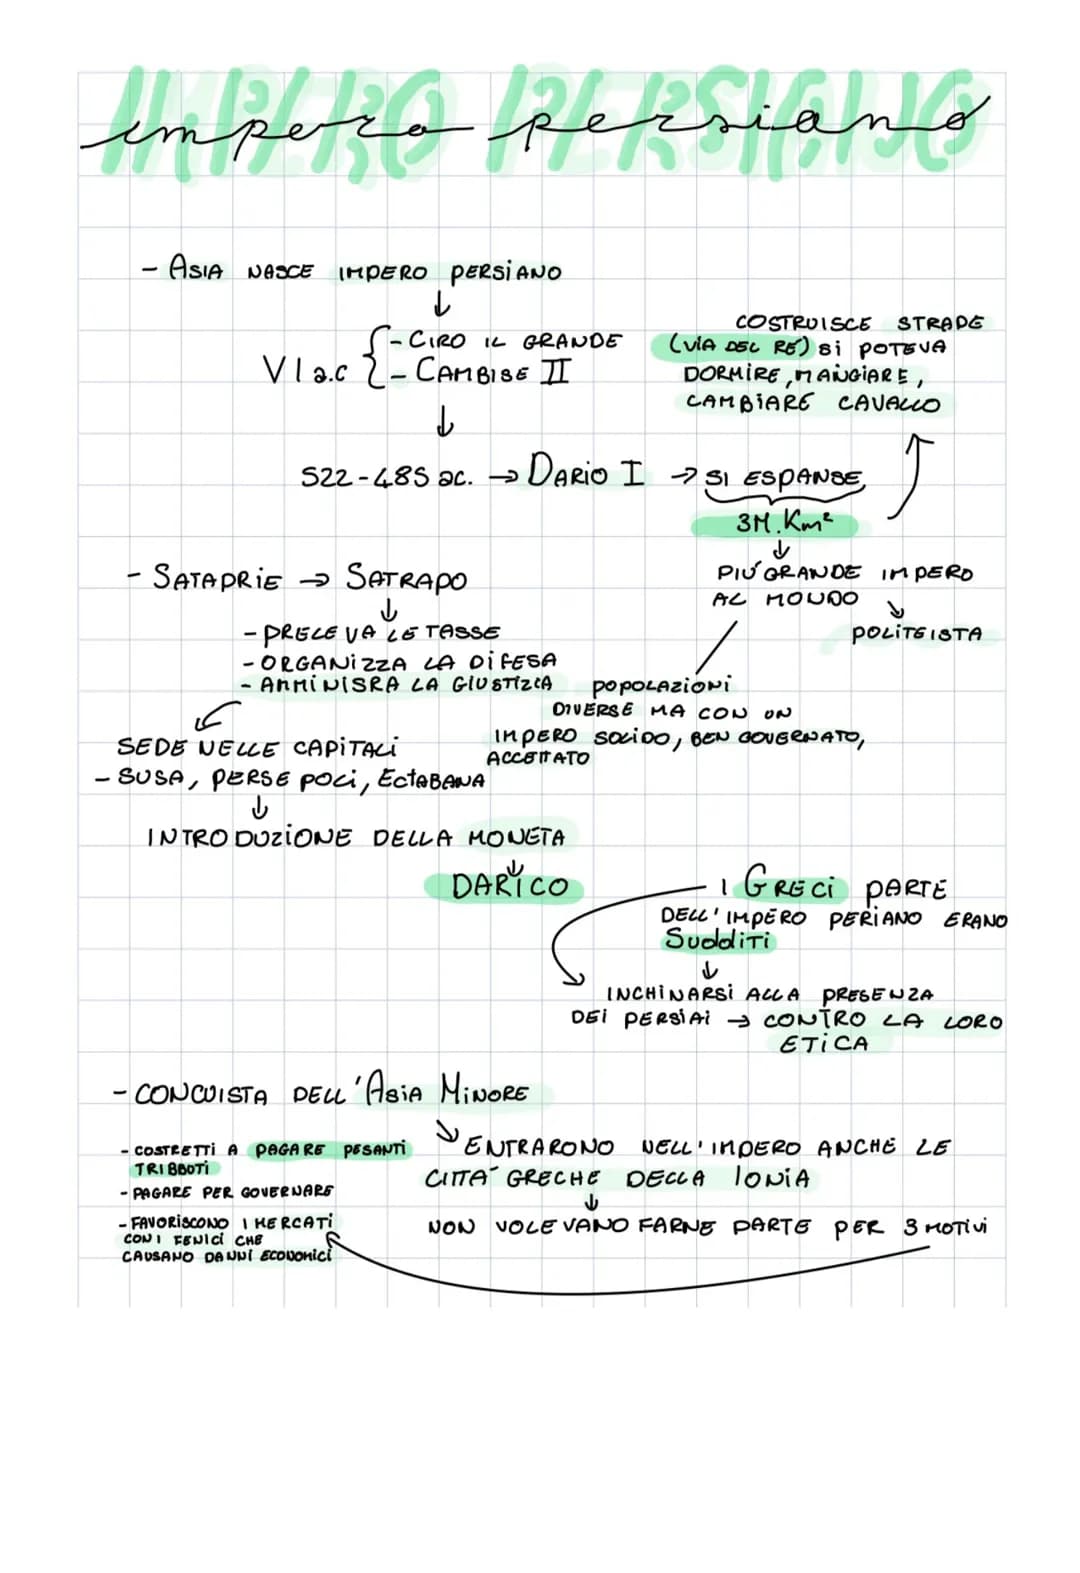 IMPERO PERSIANO
impero persiano
- ASIA NASCE IMPERO PERSIANO
↓
VI a.c { - CIRO IL GRANDE
- CAMBISE II
↓
COSTRUISCE STRADE
(VIA DEL RE) SI POTEVA
DORMIRE, MANGIARE,
CAMBIARE CAVALLO
522-485 ac. → DARIO I → SI ESPANSE
3M.Km²
↓
PIÙ GRANDE IMPERO
AL MONDO
POLITEISTA
- SATAPRIE → SATRAPO
↓
- PRELEVA LE TASSE
- ORGANIZZA LA DIFESA
- AMMINISRA LA GIUSTIZIA
POPOLAZIONI
DIVERSE MA CON UN
IMPERO SOLIDO, BEN GOVERNATO,
ACCETTATO
SEDE NELLE CAPITALI
- SUSA, PERSE POLI, ECTABANA
↓
INTRODUZIONE DELLA MONETA
↓
DARICO
I GRECI PARTE
DELL'IMPERO PERIANO ERANO
SUDDITI
↓
INCHINARSI ALLA PRESENZA
DEI PERSIAI → CONTRO LA LORO
ETICA
- CONQUISTA DELL'ASIA MINORE
ENTRARONO NELL'IMPERO ANCHE LE
CITTA' GRECHE DELLA IONIA
↓
NON VOLEVANO FARNE PARTE PER 3 MOTIVI
- COSTRETTI A PAGARE PESANTI
TRIBBOTI
- PAGARE PER GOVERNARE
- FAVORISCONO I MERCATI
CON I FENICI CHE
CAUSANO DANNI ECONOMICI